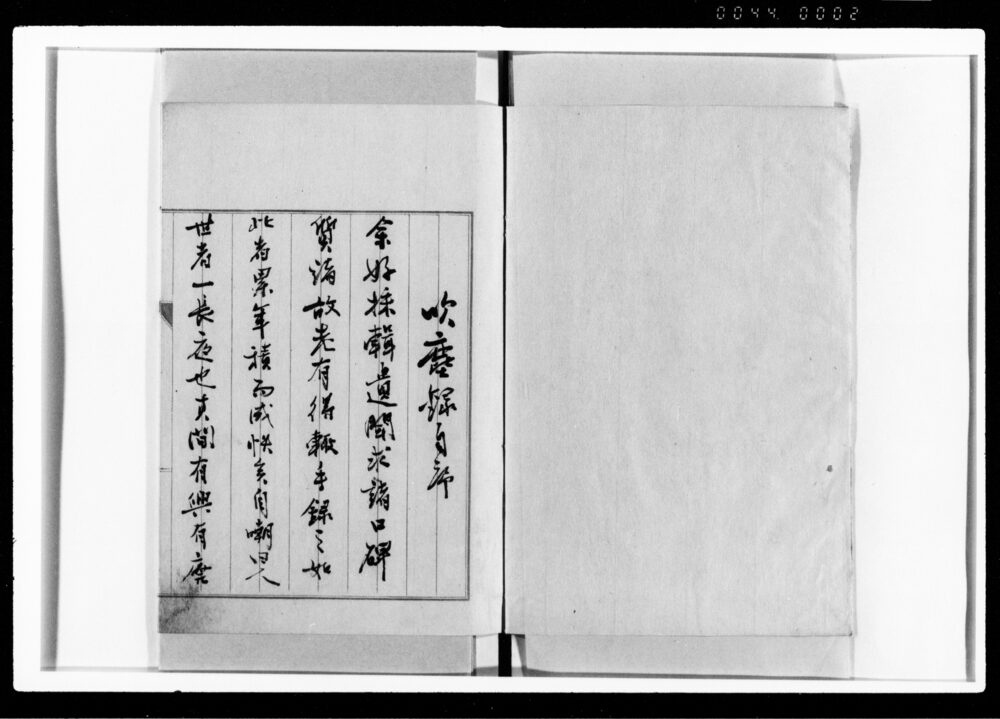 0044 0002
吹塵録自序
余好採輯遺聞求諸口碑
質諸故老有得輙手録之如
此者累年積而成帙矣自嘲曰人
世者一長夜也其間有興有廃